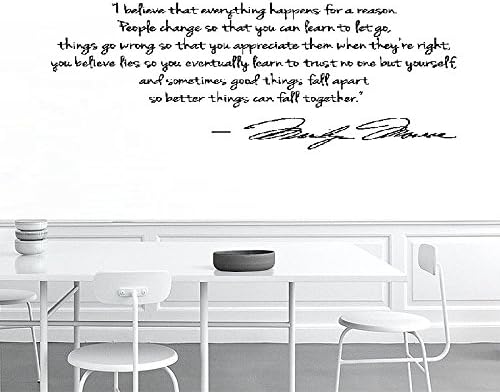 "I believe that everything happens for a reason.
People change so that you can learn to let go,
things go wrong so that you appreciate them when they're right,
you believe lies so you eventually learn to trust no one but yourself,
and sometimes good things fall apart
so better things can fall together."
— Marilyn Monroe